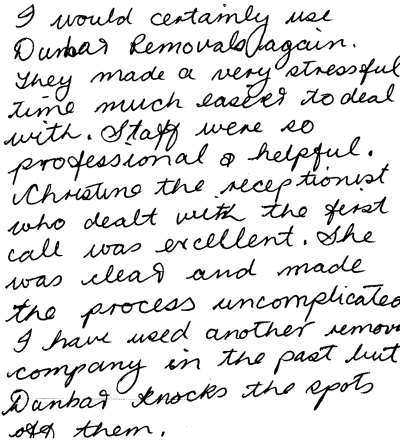 I would certainly use
Dunbar Removals again.
They made a very stressful
time much easier to deal
with. Staff were so
professional & helpful.
Christine the receptionist
who dealt with the first
call was excellent. She
was clear and made
the process uncomplicated
I have used another remov
company in the past but
Dunbar knocks the spots
off them.